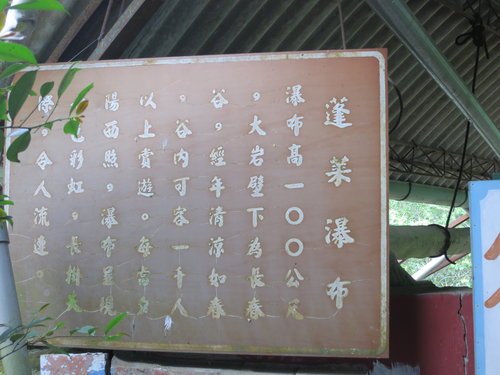 蓬萊瀑布
瀑布高一〇〇公尺
，大岩壁下為長春
谷，經年清涼如春
，谷內可容一千人
以上賞遊。每當夕
陽西照，瀑布呈現
色彩虹，長掛天
際，令人流連。